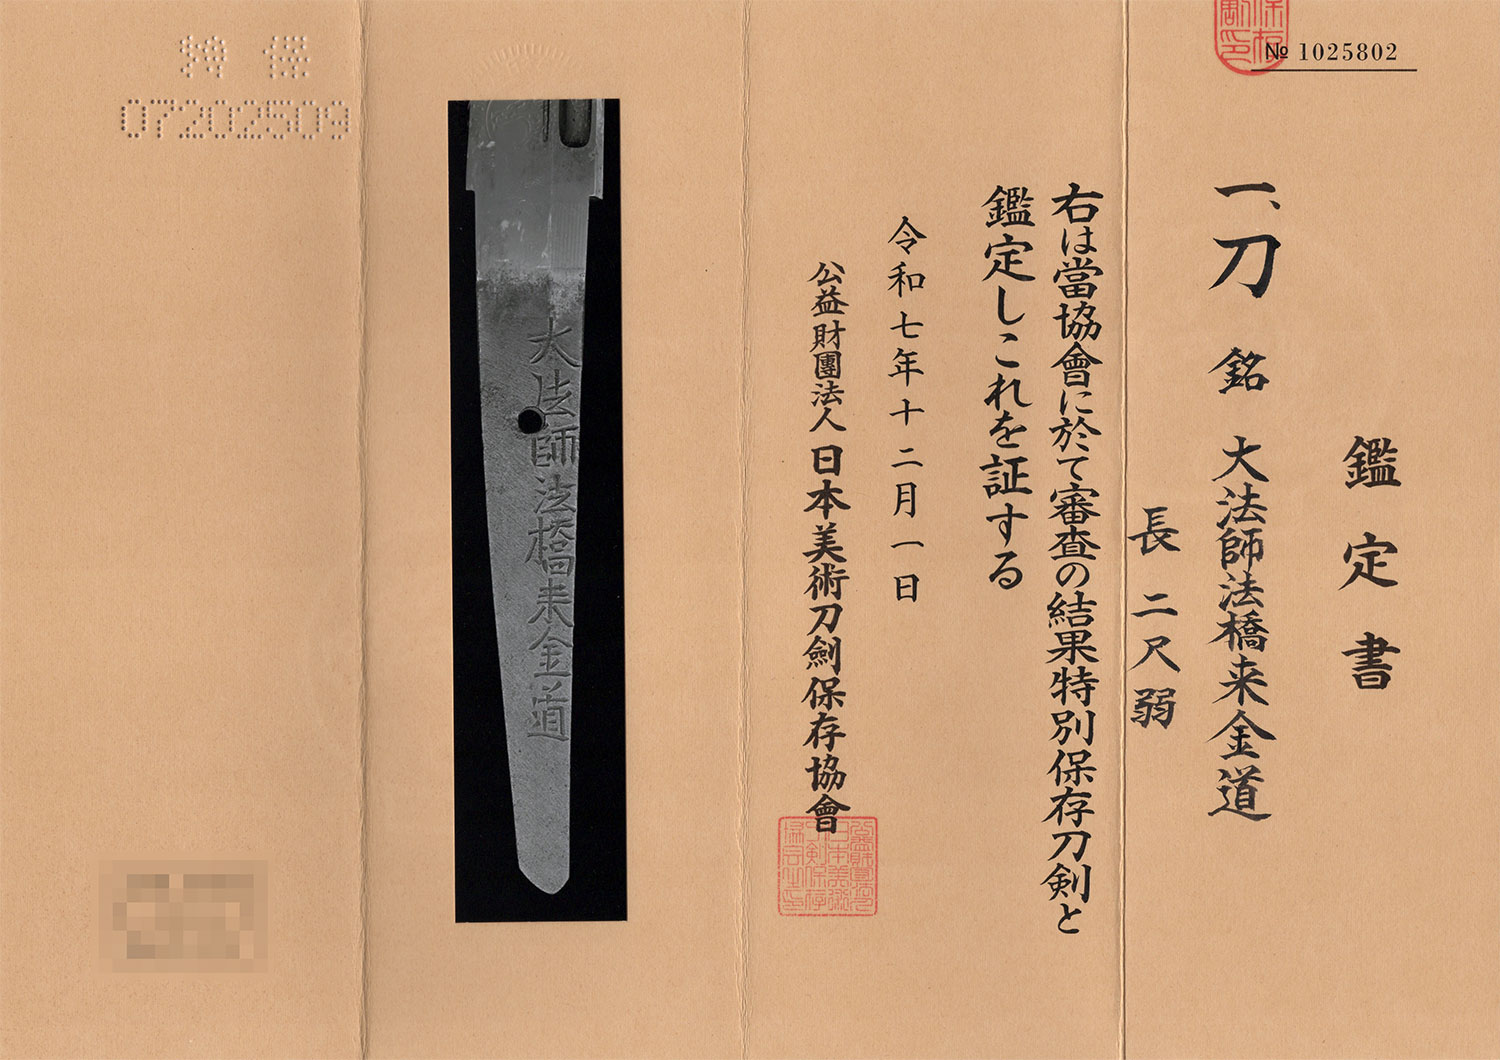 № 1025802
鑑定書
一、刀 銘 大法師法橋来金道
長二尺弱
右は當協會に於て審査の結果特別保存刀剣と
鑑定しこれを証する
令和七年十二月一日
公益財團法人 日本美術刀劍保存協會
大法師法橋来金道
特保
07202509